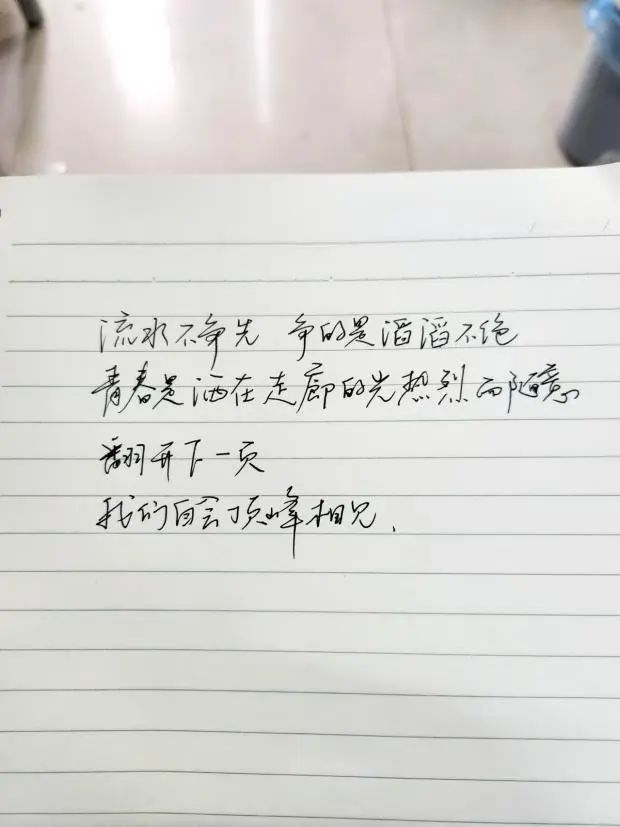 流水不争先 争的是滔滔不绝
青春是洒在走廊的光热烈而随意
翻开下一页
我们自会顶峰相见.